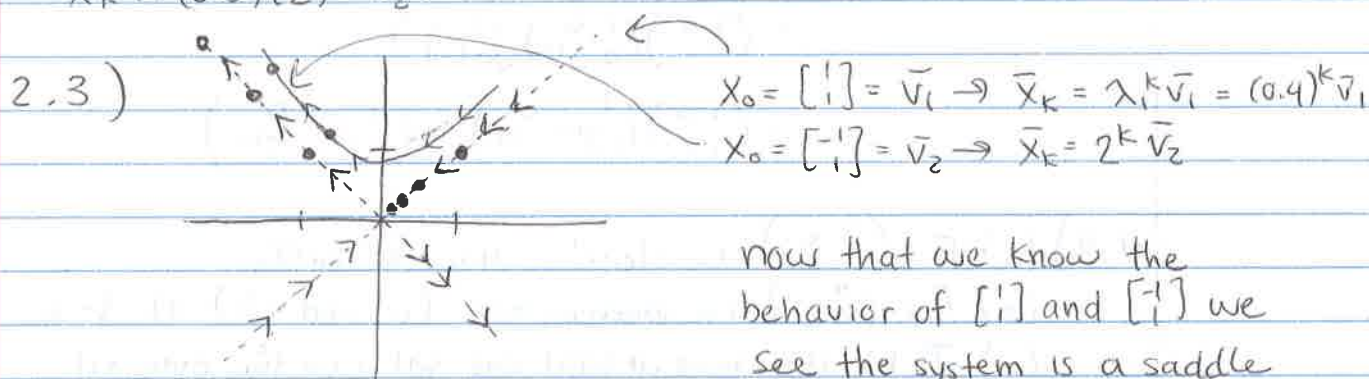 2.3)
X₀ = [1 1] = v̄₁ → x̄ₖ = λ₁ᵏ v̄₁ = (0.4)ᵏ v̄₁
X₀ = [-1 1] = v̄₂ → x̄ₖ = 2ᵏ v̄₂
now that we know the
behavior of [1 1] and [-1 1] we
see the system is a saddle